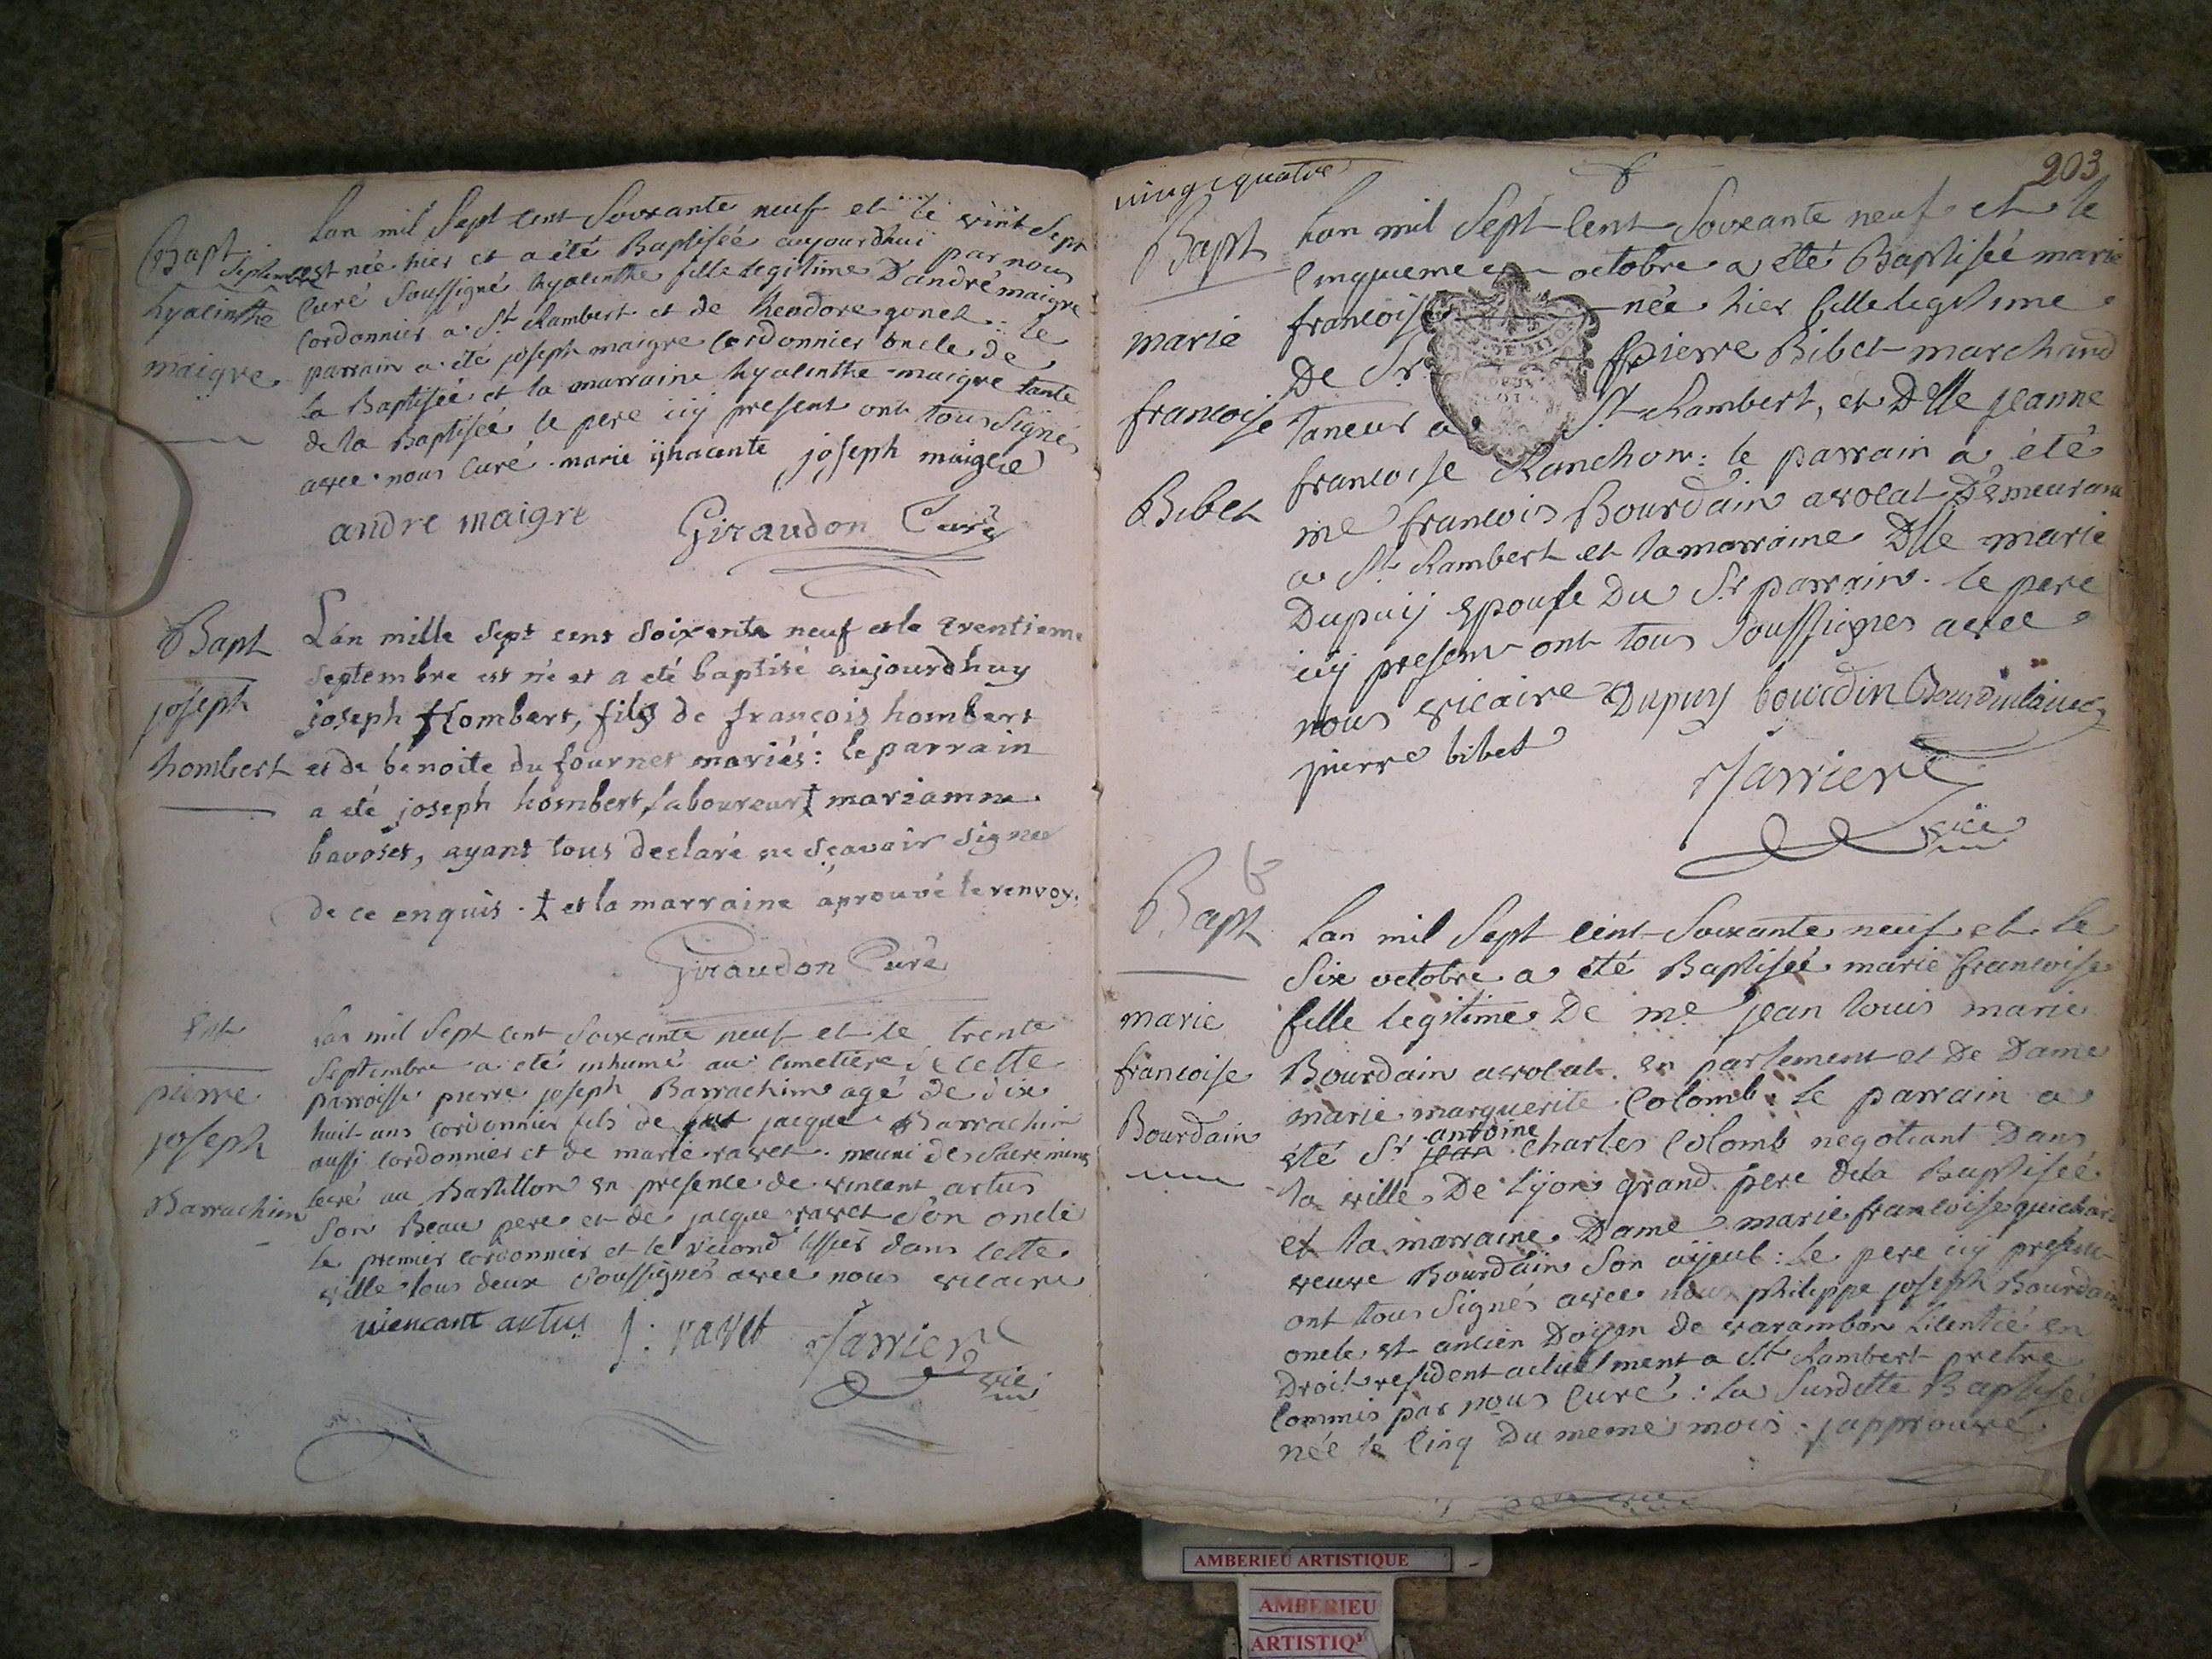 Bapt
hyacinthe
maigre
Lan mil Sept cent Soixante neuf et le vint Sept
Septembre est née hier et a été Baptisée aujourdhui par nous
Curé Soussigné hyacinthe fille legitime D'andré maigre
Cordonnier a St Rambert et de theodore gonet : le
parrain a été joseph maigre Cordonnier oncle de
la Baptisée et la marraine hyacinthe maigre tante
de la Baptisée le pere icy present ont tous Signés
avec nous Curé . marie ÿhacente joseph maigre
andre maigre Giraudon Curé
Bapt
joseph
hombert
L'an mille Sept cent Soixante neuf et le trentieme
Septembre est né et a eté baptisé aujourdhuy
joseph hombert, fils de françois hombert
et de benoite du fournet mariés : le parrain
a eté joseph hombert, laboureur ‡ mariamne
bavoset, ayant tous declaré ne sçavoir signer
de ce enquis . ‡ et la marraine aprouvé le renvoy.
Giraudon Curé
pierre
joseph
Barrachin
Lan mil Sept cent Soixante neuf et le trente
Septembre a eté inhumé au cimetiere de cette
parroisse pierre joseph Barrachin agé de dix
huit ans cordonnier fils de jacque Barrachin
aussi Cordonnier et de marie ravet . muni des Sacremens
levé au Bastillon en presence de vincent artus
Son Beau pere et de jacque ravet Son oncle
le premier cordonnier et le second tissier dans cette
ville tous deux Soussignés avec nous vicaire
wencant artus J : ravet Jarrier
vic
vingt quatre
203
Bapt
marie
francoise
Bibet
Lan mil Sept Cent Soixante neuf et le
Cinquieme octobre a été Baptisée marie
francoise née hier fille legitime
De Sr pierre Bibet marchand
taneur a St Rambert, et Dlle jeanne
francoise Ranchon : le parrain a été
me francois Bourdain avocat Demeurant
a St Rambert et la marraine Dlle marie
Dupuij epouse Du Sr parrain . le pere
icij present ont tous Soussignes avec
nous vicaire Dupuy bourdin
pierre bibet
Jarrier
vic
Bapt
marie
francoise
Bourdain
Lan mil Sept Cent Soixante neuf et le
Six octobre a été Baptisée marie francoise
fille legitime De me jean louis marie
Bourdain avocat en parlement et De Dame
marie marguerite Colomb : le parrain a
été Sr antoine Charles Colomb negotiant Dans
la ville De Lÿon grand pere dela Baptisée
et la marraine Dame marie francoise guichard
veuve Bourdain Son aÿeul : le pere icij present
ont tous Signés avec nous philippe joseph Bourdain
oncle et ancien Doyen de varambon Licentié en
Droit resident actuelment a St Rambert pretre
Commis par nous Curé : la Susditte Baptisée
née le Cinq Du meme mois : japprouve
AMBERIEU ARTISTIQUE
AMBERIEU
ARTISTIQ